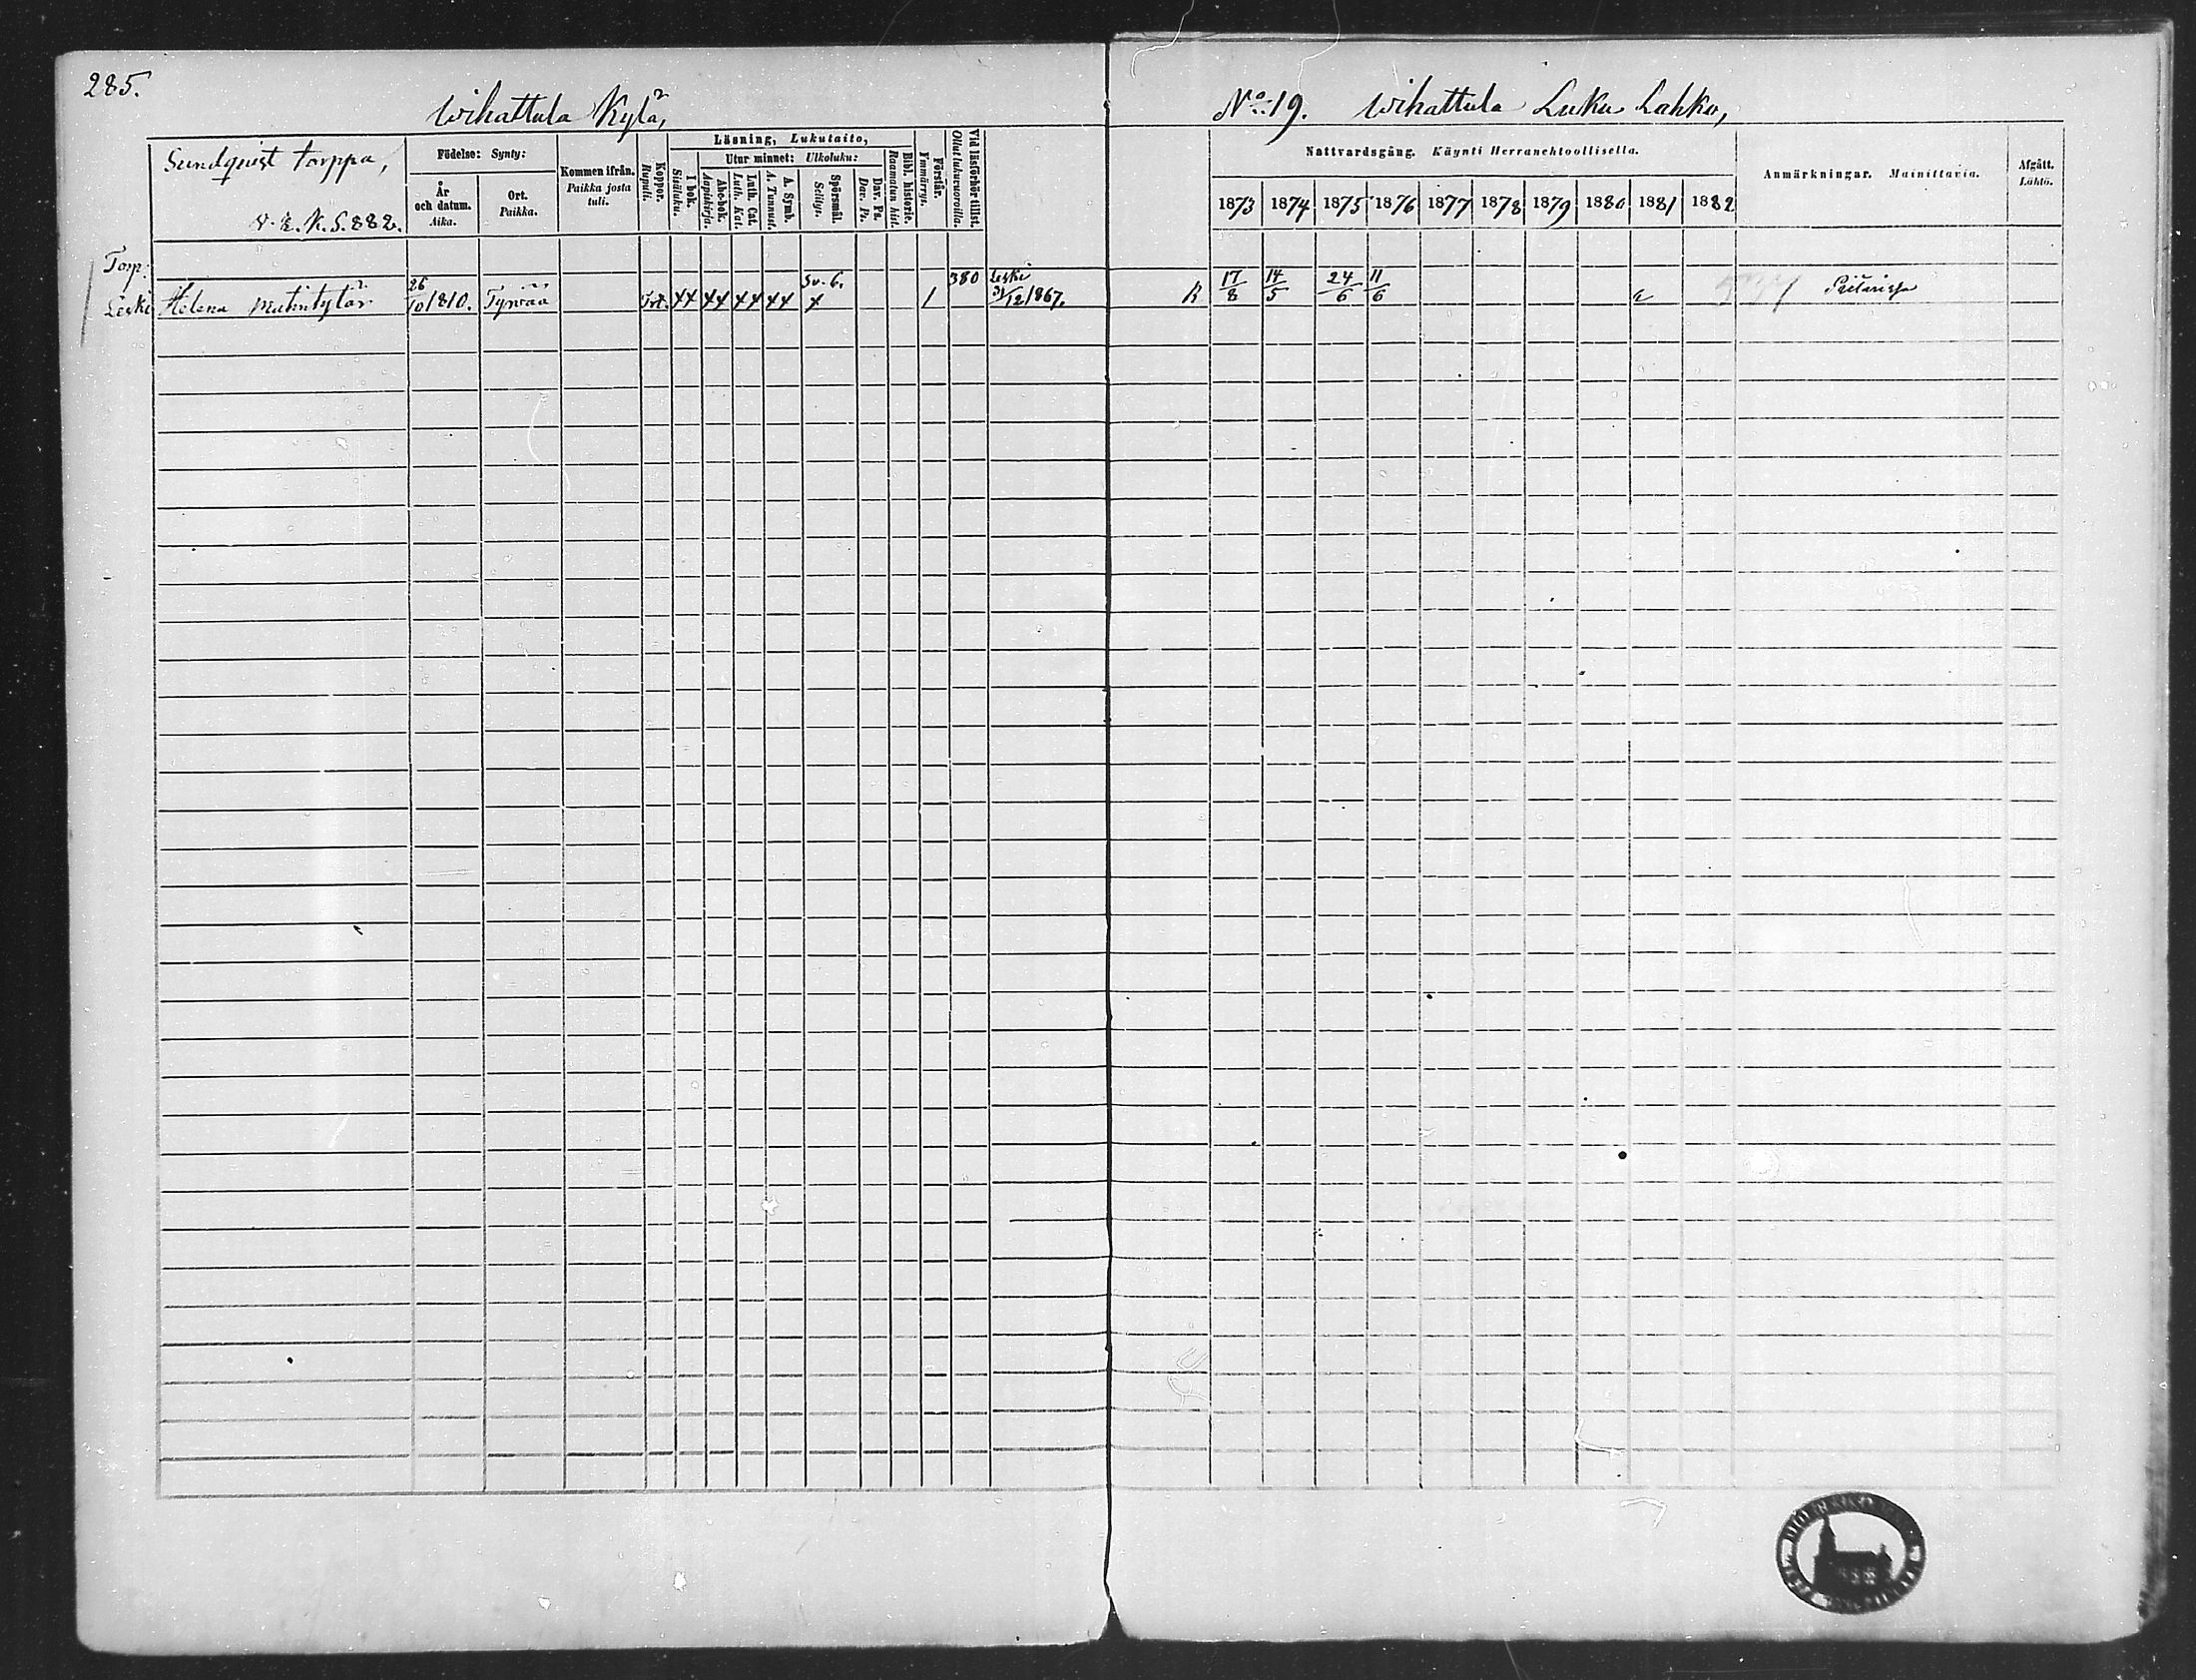 285.
Wihattula Kylä,
No: 19. Wihattula Luku Lahko,
Sundquist torppa,
v. E. K. S. 882.
Födelse: Synty:
År och datum. Aika.
Ort. Paikka.
Kommen ifrån. Paikka josta tuli.
Koppor. Rupuli.
Läsning, Lukutaito,
I bok. Sisäluku.
Utur minnet: Ulkoluku:
Abc-bok. Aapiskirja.
Luth. Cat. Luth. Kat.
A. Symb. A. Tunnust.
Spörsmål. Selitys.
Dav. Ps. Dav. Ps.
Bibl. historie. Raamatun hist.
Förstår. Ymmärrys.
Vid läsförhör tillst. Ollut lukuvuoroilla.
Nattvardsgång. Käynti Herranehtoollisella.
1873 1874 1875 1876 1877 1878 1879 1880 1881 1882
Anmärkningar. Mainittavia.
Afgått. Lähtö.
Torp.
Leski Helena Matintytär 26/10 1810. Tyrvää Sv. 6. 1 380 Leski 31/12 1867. R 17/8 14/5 24/6 11/6